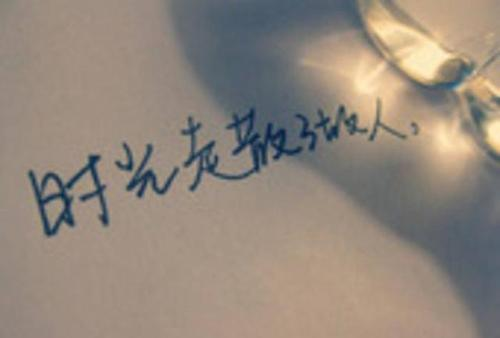 时光走散了故人。